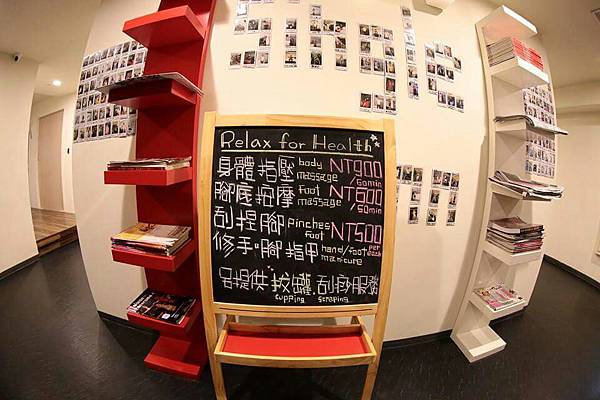 Relax for Health
身體指壓 body massage NT900/60min
腳底按摩 foot massage NT600/50min
刮捏腳 pinches foot NT500 per each
修手·腳指甲 hand/foot manicure
另提供拔罐.刮痧服務
cupping scraping